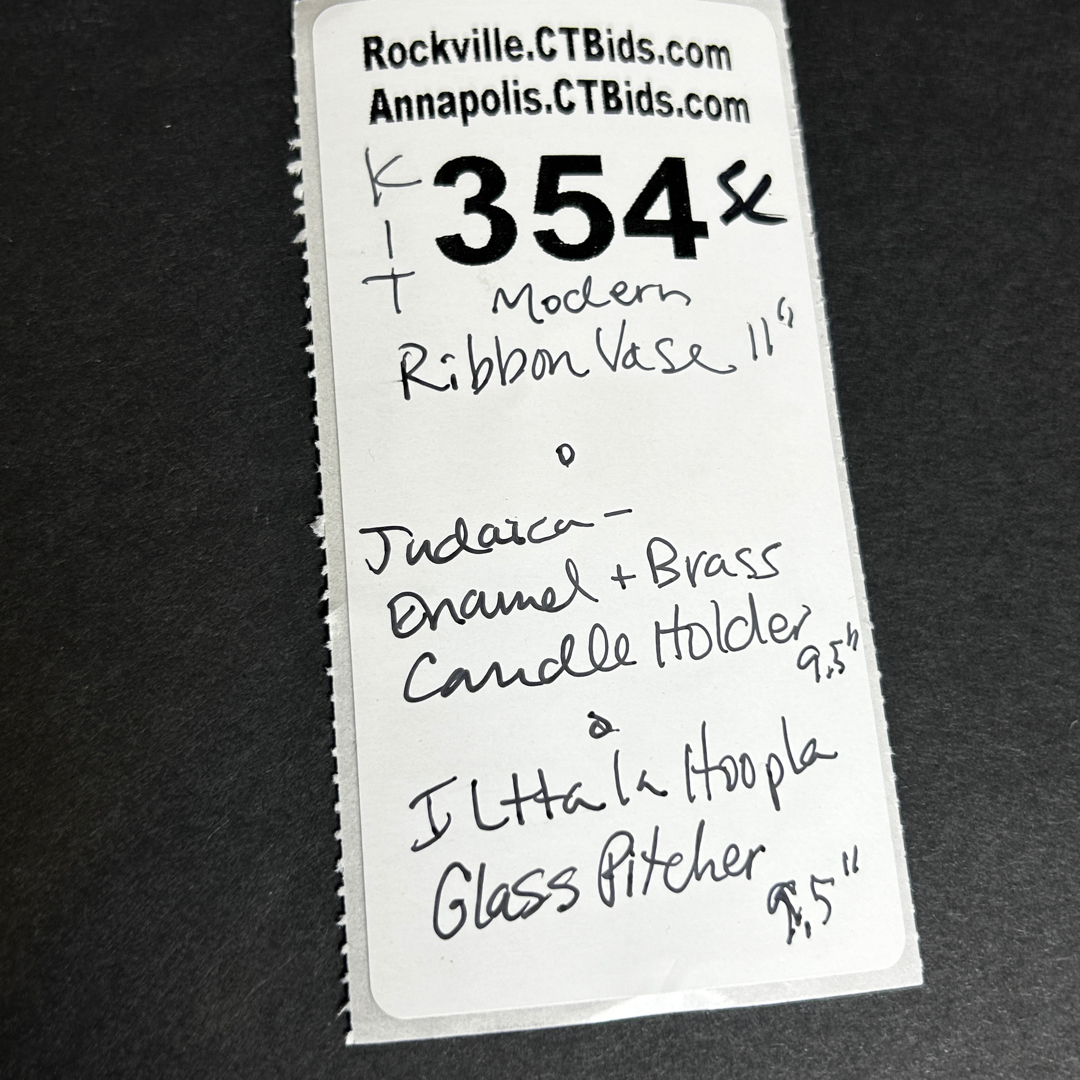 Rockville.CTBids.com
Annapolis.CTBids.com
KIT
354
Modern
Ribbon Vase 11"
Judaica -
Enamel + Brass
Candle Holder
9.5"
ILttala Hoopla
Glass Pitcher
9.5"